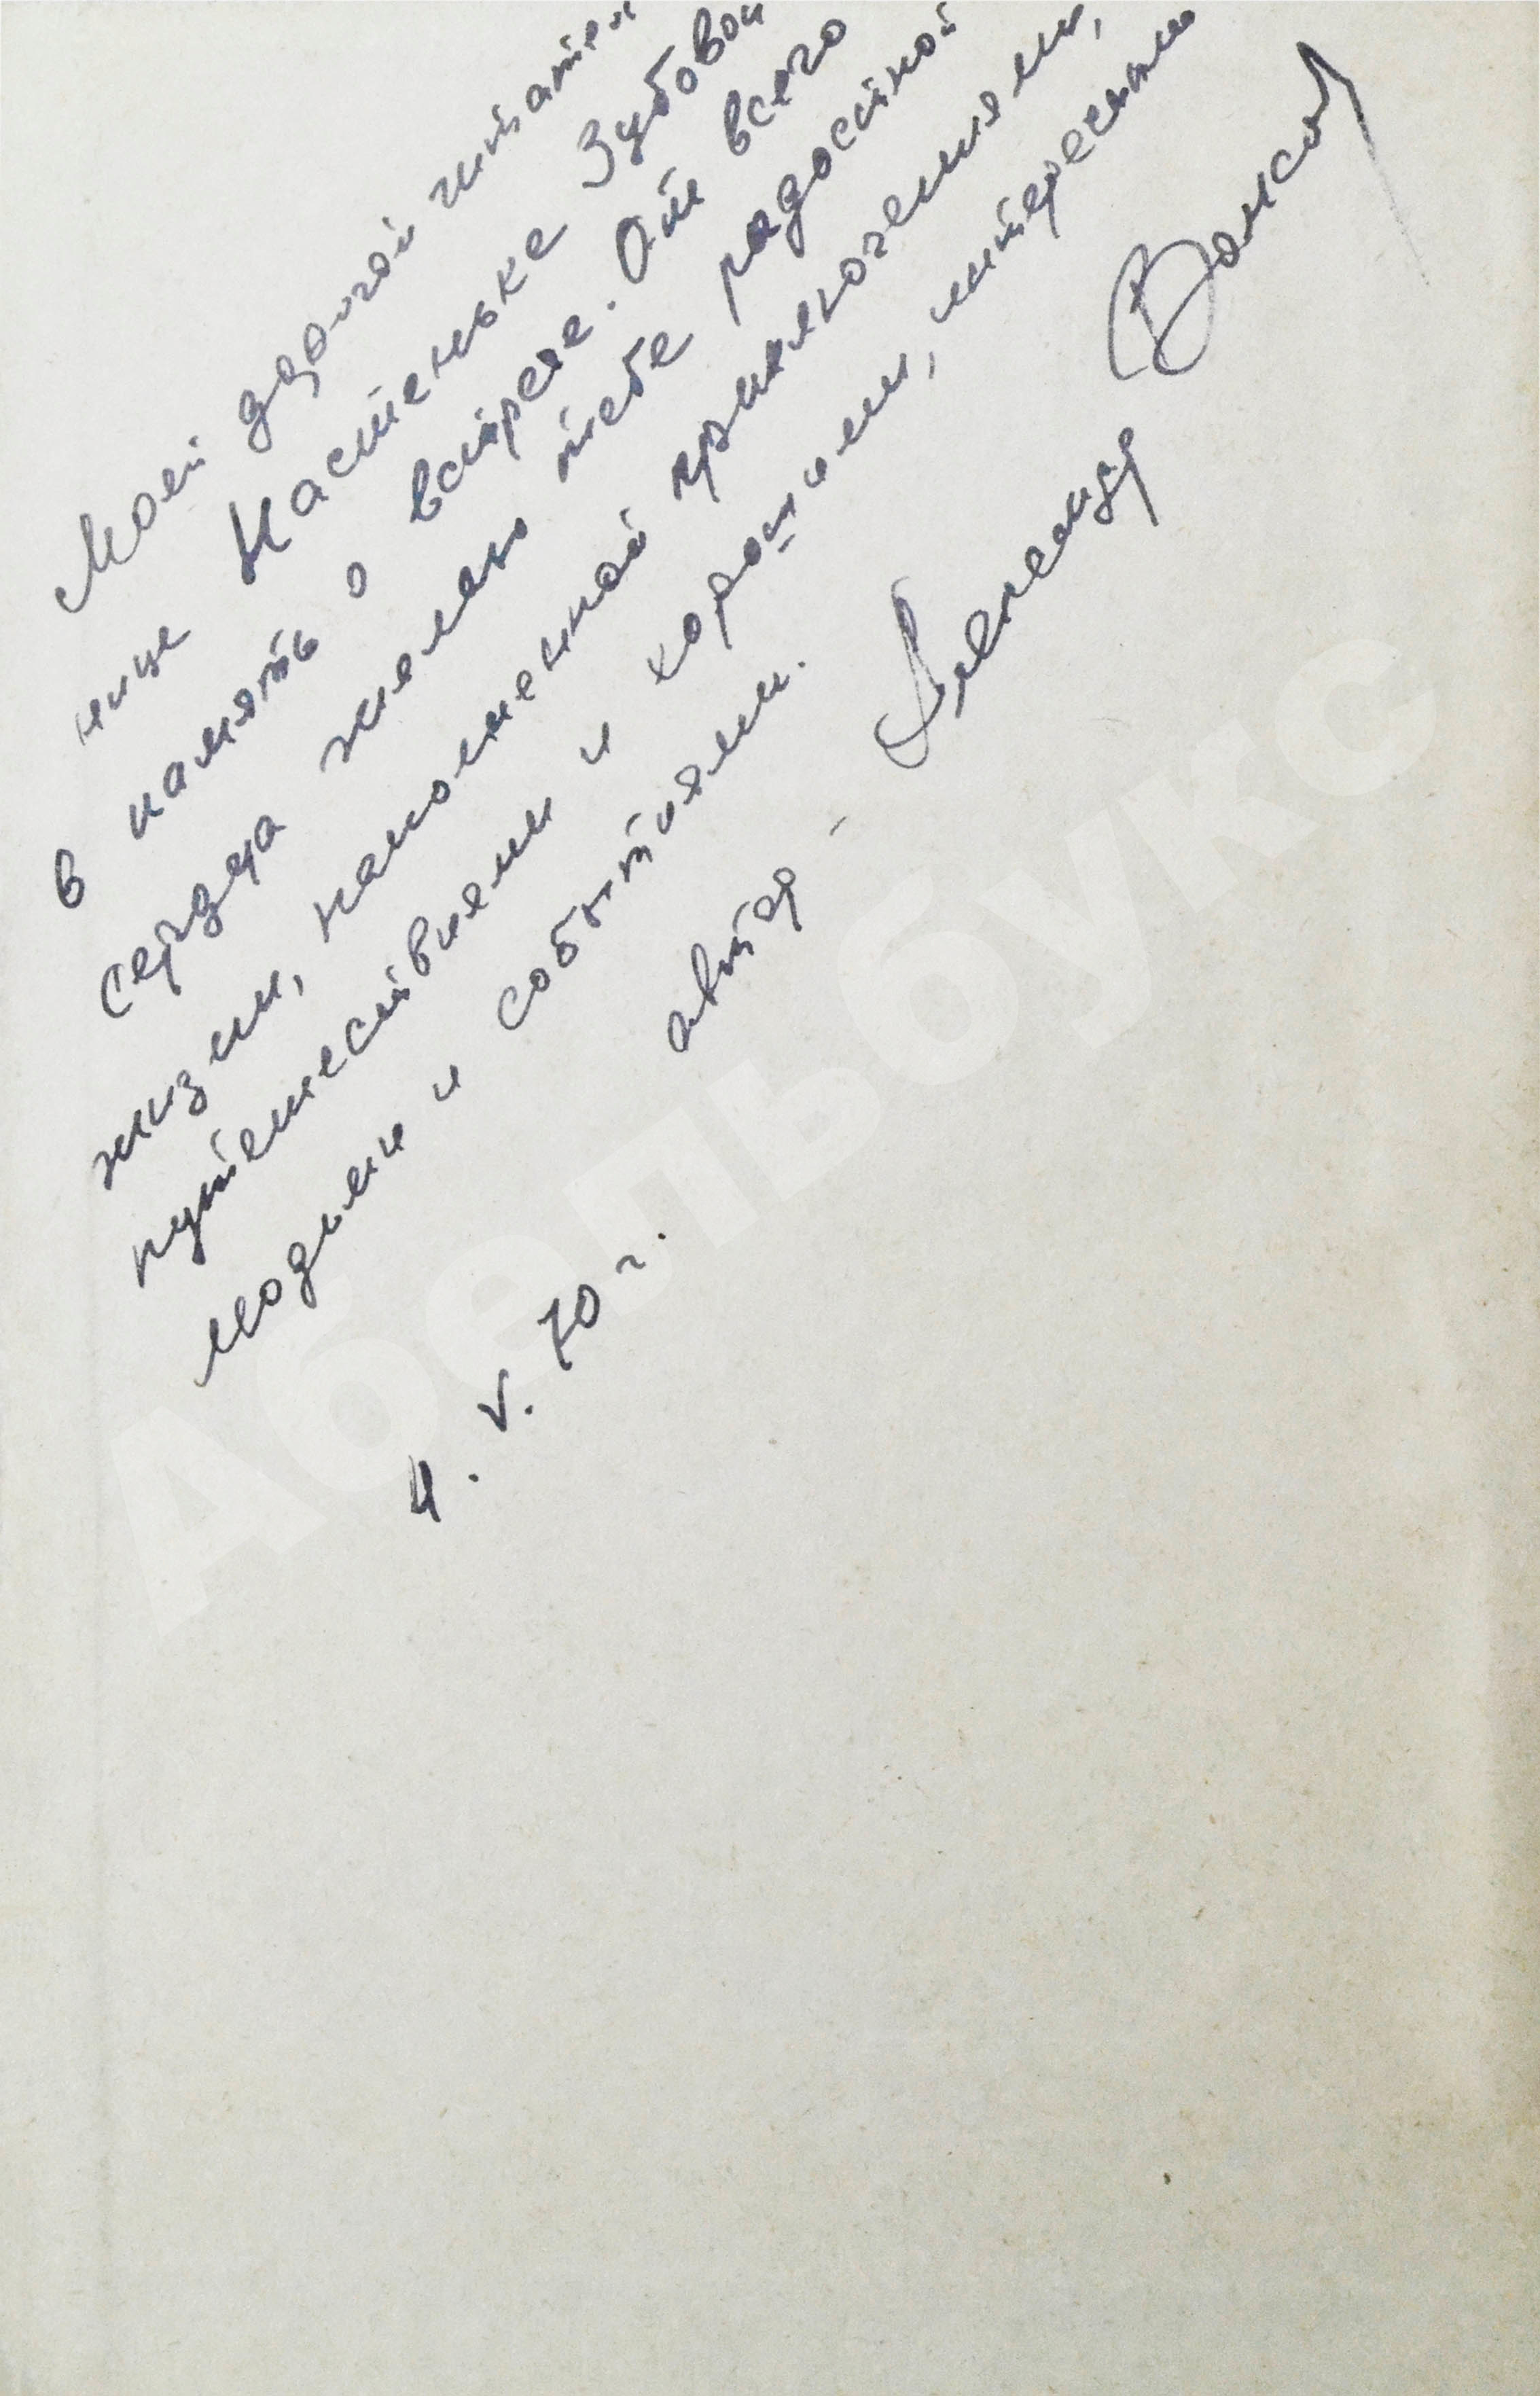 Моей дорогой читатель
нице Настеньке Зубовой
в память о встрече. От всего
сердца желаю тебе радостной
жизни, наполненной приключениями,
путешествиями и хорошими, интересными
людьми и событиями.
автор - Александр Волков
4. V. 70 г.
Абельбукс